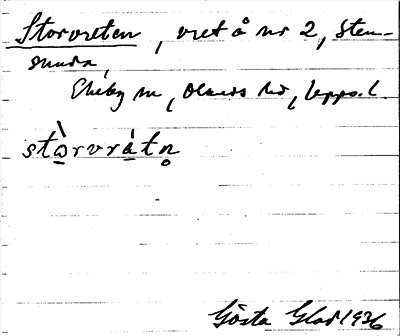 Storvreten, vret å nr 2, Sten-
sunda,
Ekeby sn, Olands hd, Upps. l.
stɔ̀rvràtn̥
Gösta Glad 1936